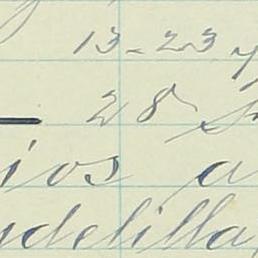 13-23 y
28
ios a
udelilla,